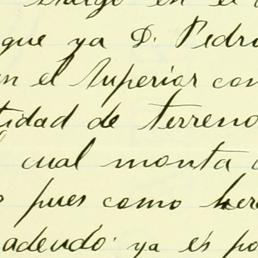 en el
que ya D. Pedro
en el Superior con
tidad de terreno
cual monta a
pues como here
adeudo ya es po